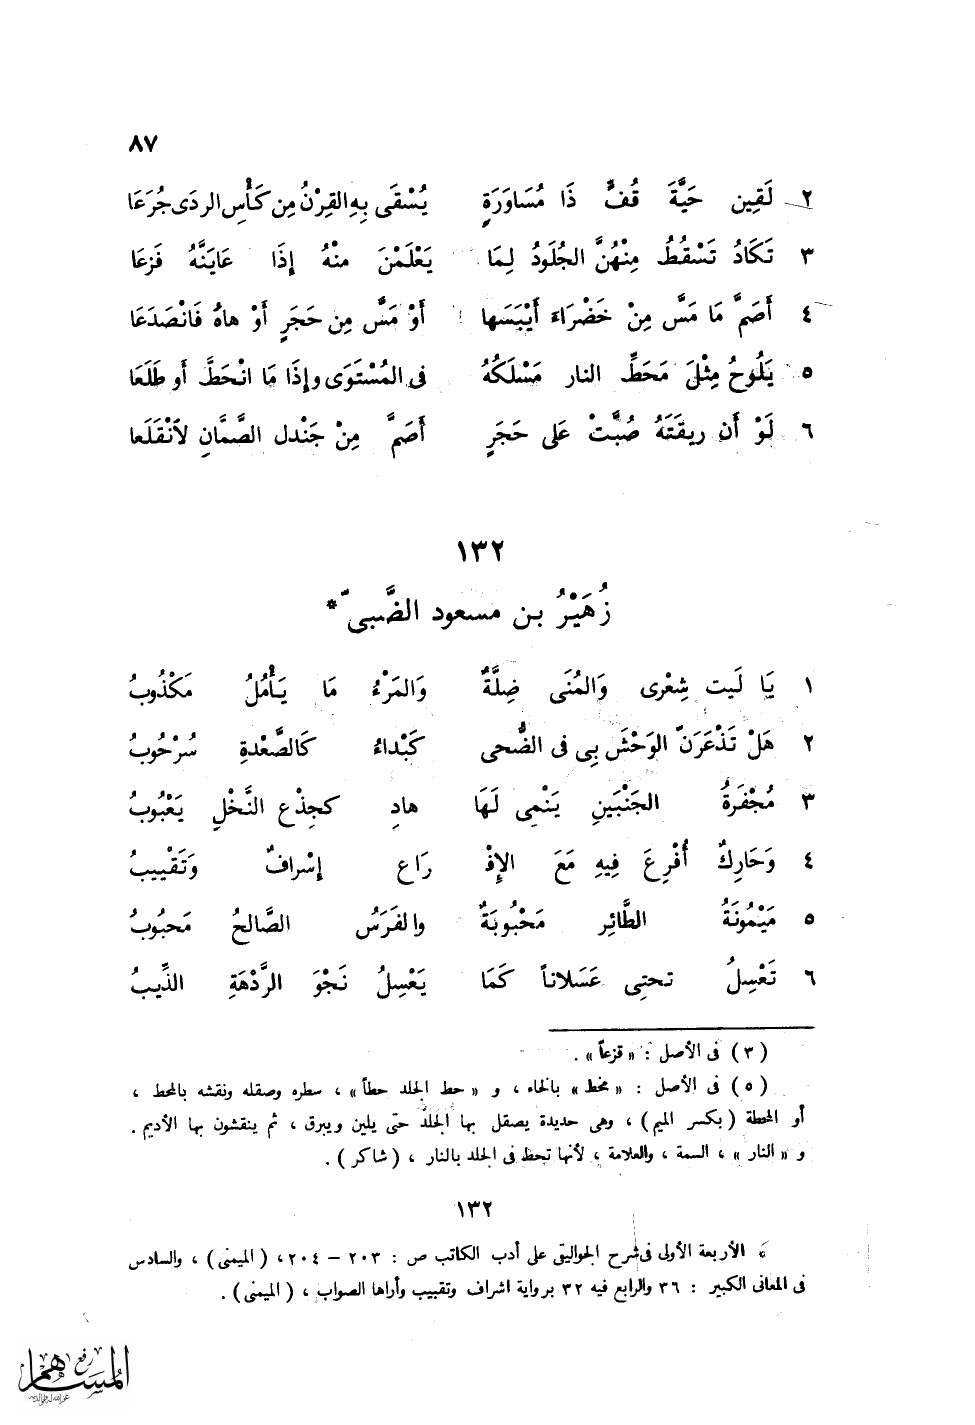 ٨٧
٢ لَقِين حَيَّةَ قُفٍّ ذَا مُسَاوَرَةٍ يُسْقَى بِهِ القِرْنُ مِن كَأْسِ الردَى جُرَعَا
٣ تَكَادُ تَسْقُطُ مِنْهُنَّ الجُلُودُ لِمَا يَعْلَمْنَ منْهُ إِذَا عَايَنَّهُ فَزَعَا
٤ أَصَمَّ مَا مَسَّ مِنْ خَضْرَاءَ أَيْبَسَها أَوْ مَسَّ مِن حَجَرٍ أَوْ هاهُ فَانْصَدَعَا
٥ يَلُوحُ مِثْلَ مَحَطِّ النار مَسْلَكُهُ فى المُسْتَوَى وإِذَا مَا انْحَطَّ أَو طَلَعَا
٦ لَوْ أَن رِيقَتَهُ صُبَّتْ عَلَى حَجَرٍ أَصَمَّ مِنْ جَنْدل الصَّمَّانِ لاَنْقَلَعا
١٣٢
زُهَيْرُ بن مسعود الضَّبىّ*
١ يَا لَيت شِعْرى وَالمُنَى ضِلَّةٌ وَالمَرْءُ مَا يَأْمُلُ مَكْذُوبُ
٢ هَلْ تَذْعَرَنّ الوَحْشَ بِى فى الضُّحى كَبْداءُ كَالصَّعْدةِ سُرْحُوبُ
٣ مُجْفَرَةُ الجَنْبَينِ يَنْمِى لَهَا هادٍ كجِذْعِ النَّخْلِ يَعْبُوبُ
٤ وَحَارِكٌ أُفْرِعَ فِيهِ مَعَ الإِفْـ رَاعِ إِسْرافٌ وَتَقْبِيبُ
٥ مَيْمُونَةُ الطَّائِرِ مَحْبُوبَةٌ والفَرَسُ الصَّالحُ مَحبُوبُ
٦ تَعْسِلُ تحتِى عَسَلاناً كَمَا يَعْسِلُ نَحْوَ الرَّدْهَةِ الذِّيبُ
( ٣ ) فى الأصل : « قزعاً » .
( ٥ ) فى الأصل : « مخط » بالخاء ، و « حط الجلد حطاً » ، سطره وصقله ونقشه بالمحط ،
أو المحطة ( بكسر الميم ) ، وهى حديدة يصقل بها الجلد حتى يلين ويبرق ، ثم ينقشون بها الأديم .
و « النار » ، السمة ، والعلامة ، لأنها تحظ فى الجلد بالنار ، ( شاكر ) .
١٣٢
* الأربعة الأولى فى شرح الجواليقى على أدب الكاتب ص : ٢٠٣ – ٢٠٤ ، ( الميمنى ) ، والسادس
فى المعانى الكبير : ٣٦ والرابع فيه ٣٢ برواية اشراف وتقبيب وأراها الصواب ، ( الميمنى ) .
رفع
المساهم